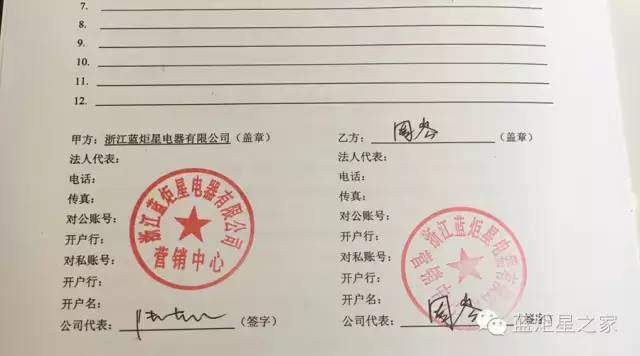 7.
8.
9.
10.
11.
12.
甲方：浙江蓝炬星电器有限公司（盖章）
法人代表：
电话：
传真：
对公账号：
开户行：
对私账号：
开户行：
开户名：
公司代表：（签字）
浙江蓝炬星电器有限公司
营销中心
乙方：周（盖章）
法人代表：
电话：
传真：
对公账号：
开户行：
对私账号：
开户行：
开户名：
公司代表：周（签字）
浙江蓝炬星电器有限公司
营销中
蓝炬星之家